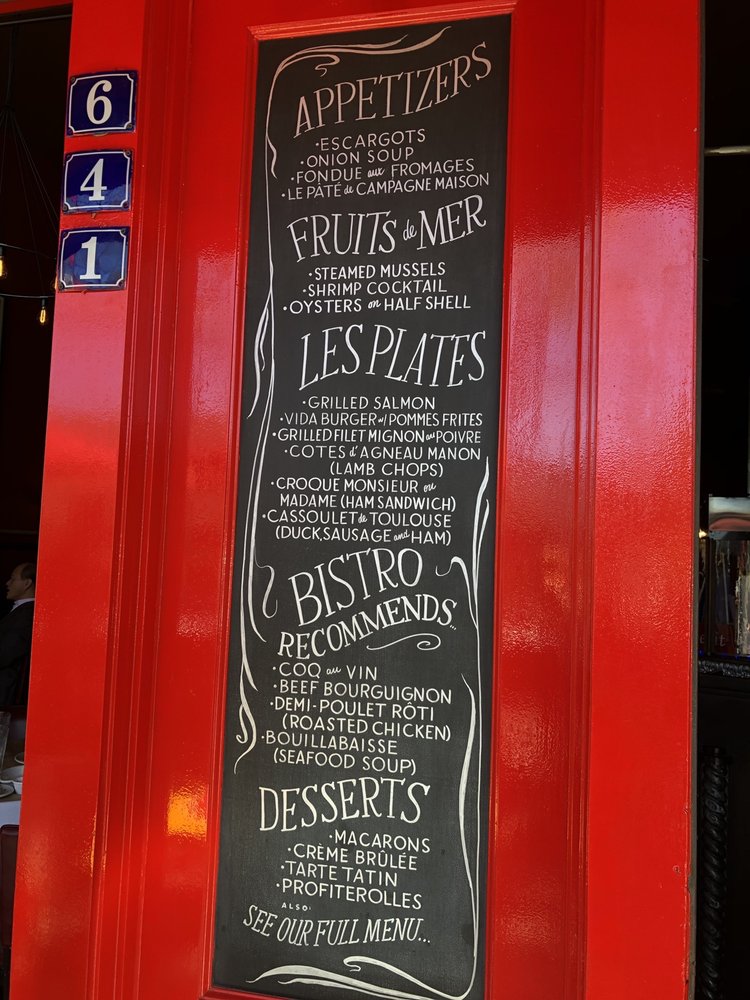 6
4
1
APPETIZERS
·ESCARGOTS
·ONION SOUP
·FONDUE aux FROMAGES
·LE PÂTÉ de CAMPAGNE MAISON
FRUITS de MER
·STEAMED MUSSELS
·SHRIMP COCKTAIL
·OYSTERS on HALF SHELL
LES PLATES
·GRILLED SALMON
·VIDA BURGER w/ POMMES FRITES
·GRILLED FILET MIGNON au POIVRE
·COTES d'AGNEAU MANON
(LAMB CHOPS)
·CROQUE MONSIEUR ou
MADAME (HAM SANDWICH)
·CASSOULET de TOULOUSE
(DUCK, SAUSAGE and HAM)
BISTRO
RECOMMENDS...
·COQ au VIN
·BEEF BOURGUIGNON
·DEMI-POULET RÔTI
(ROASTED CHICKEN)
·BOUILLABAISSE
(SEAFOOD SOUP)
DESSERTS
·MACARONS
·CRÈME BRÛLÉE
·TARTE TATIN
·PROFITEROLLES
ALSO:
SEE OUR FULL MENU...